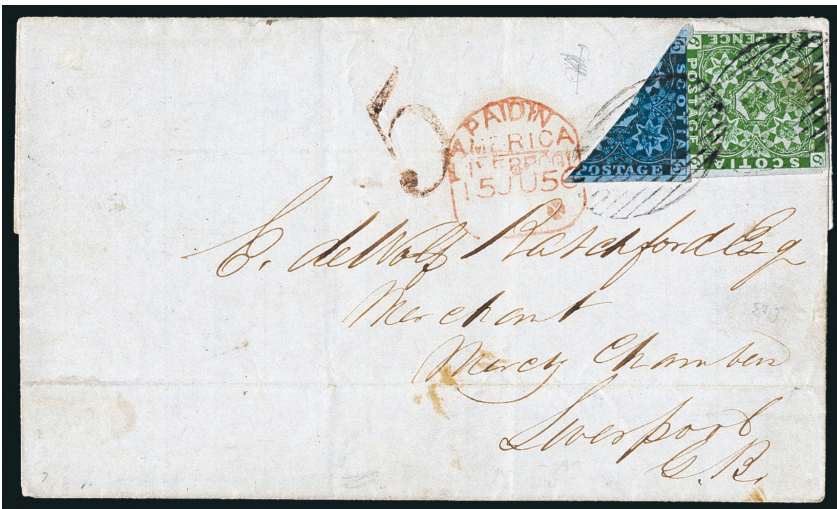 5
PAID IN
AMERICA
LIVERPOOL
15 JU 56
SCOTIA
POSTAGE
PENCE
POSTAGE
SCOTIA
6
6
6
E. deWolf Ratchford Esq
Merchant
Mersey Chambers
Liverpool
G.B.